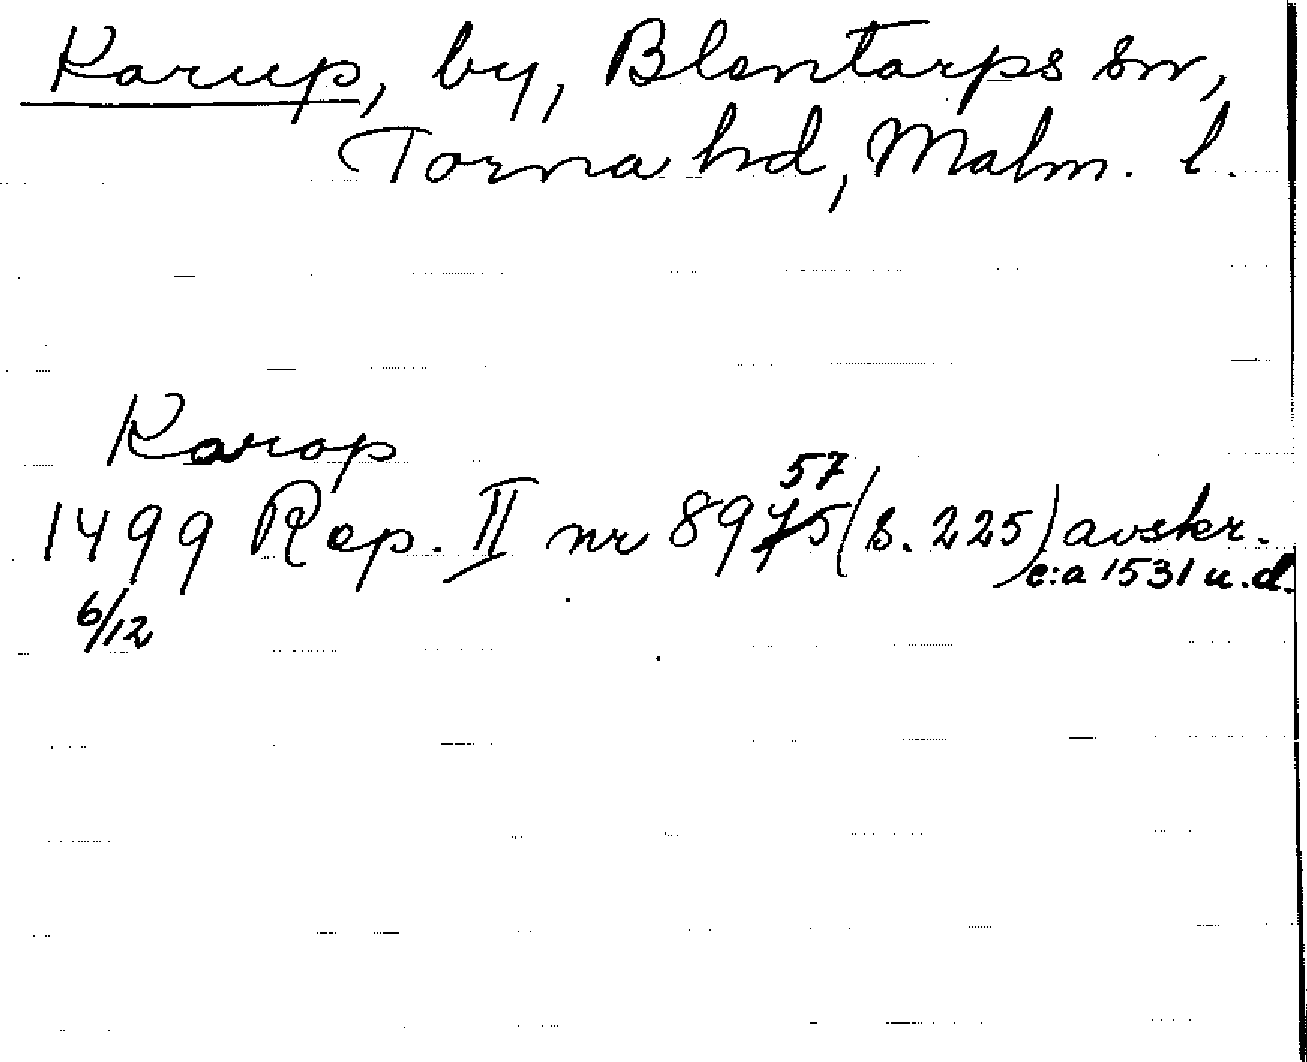 Karup, by, Blentarps sn,
Torna hd, Malm. l.
Karop
57
1499 Rep. II nr 8975 (s. 225) avskr.
c:a 1531 u.d.
6/12